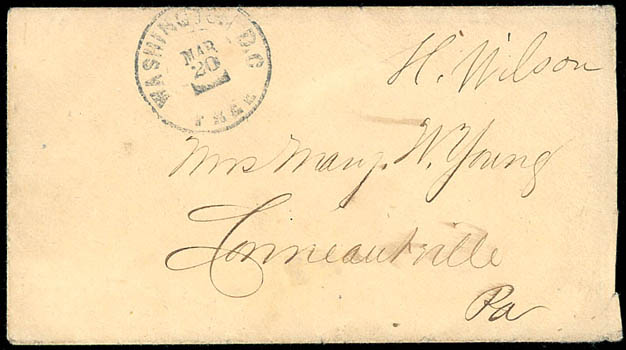 WASHINGTON D.C.
MAR
20
FREE
H. Wilson
Mrs Mary W. Young
Conneautville
Pa